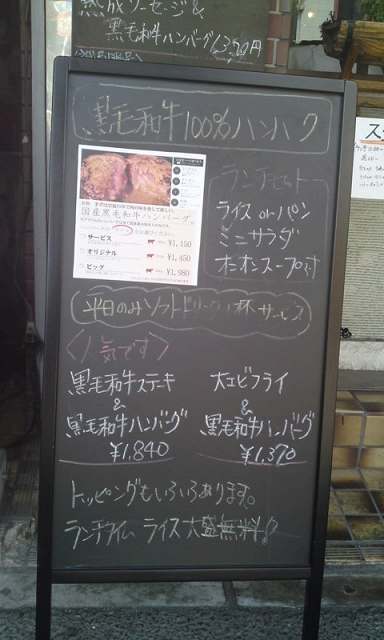 熟成ソーセージ &
黒毛和牛ハンバーグ
黒毛和牛100%ハンバグ
国産黒毛和牛ハンバーグ
サービス ¥1,150
オリジナル ¥1,450
ビッグ ¥1,980
ランチセット
ライス orパン
ミニサラダ
オニオンスープ付
平日のみソフトドリンク1杯サービス
人気です
黒毛和牛ステキ
&
黒毛和牛ハンバーグ
¥1,840
大エビフライ
&
黒毛和牛ハンバーグ
¥1,370
トッピングもいろいろあります。
ランチタイム ライス大盛無料!